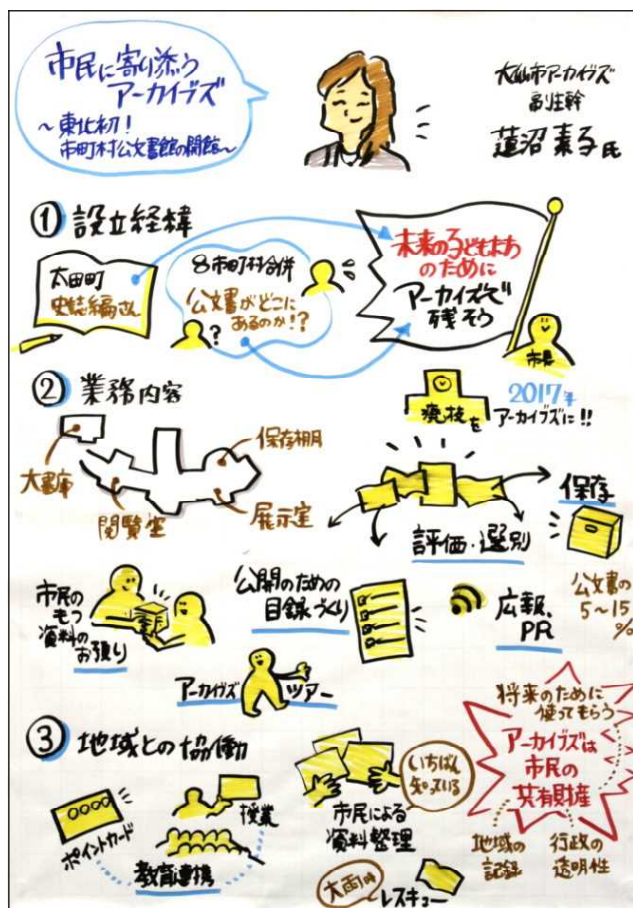 市民に寄り添う
アーカイブズ
～東北初！
市町村公文書館の開館～
大仙市アーカイブズ
副主幹
蓮沼素子氏
① 設立経緯
太田町
史誌編さん
8市町村合併
公文書がどこに
あるのか!?
?
未来の子どもたち
のために
アーカイブズで
残そう
市長
② 業務内容
2017年
廃校を
アーカイブズに!!
保存棚
大書庫
閲覧室
展示室
評価・選別
保存
公文書の
5～15
%
市民の
もつ
資料の
お預り
公開のための
目録づくり
広報、
PR
アーカイブズ
ツアー
③ 地域との協働
ポイントカード
授業
教育連携
市民による
資料整理
いちばん
知っている
大雨時
レスキュー
将来のために
使ってもらう
アーカイブズは
市民の
共有財産
地域の
記録
行政の
透明性